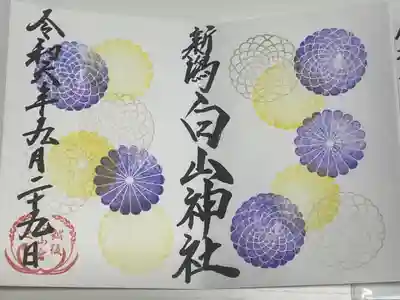 新潟白山神社
令和六年九月二十九日